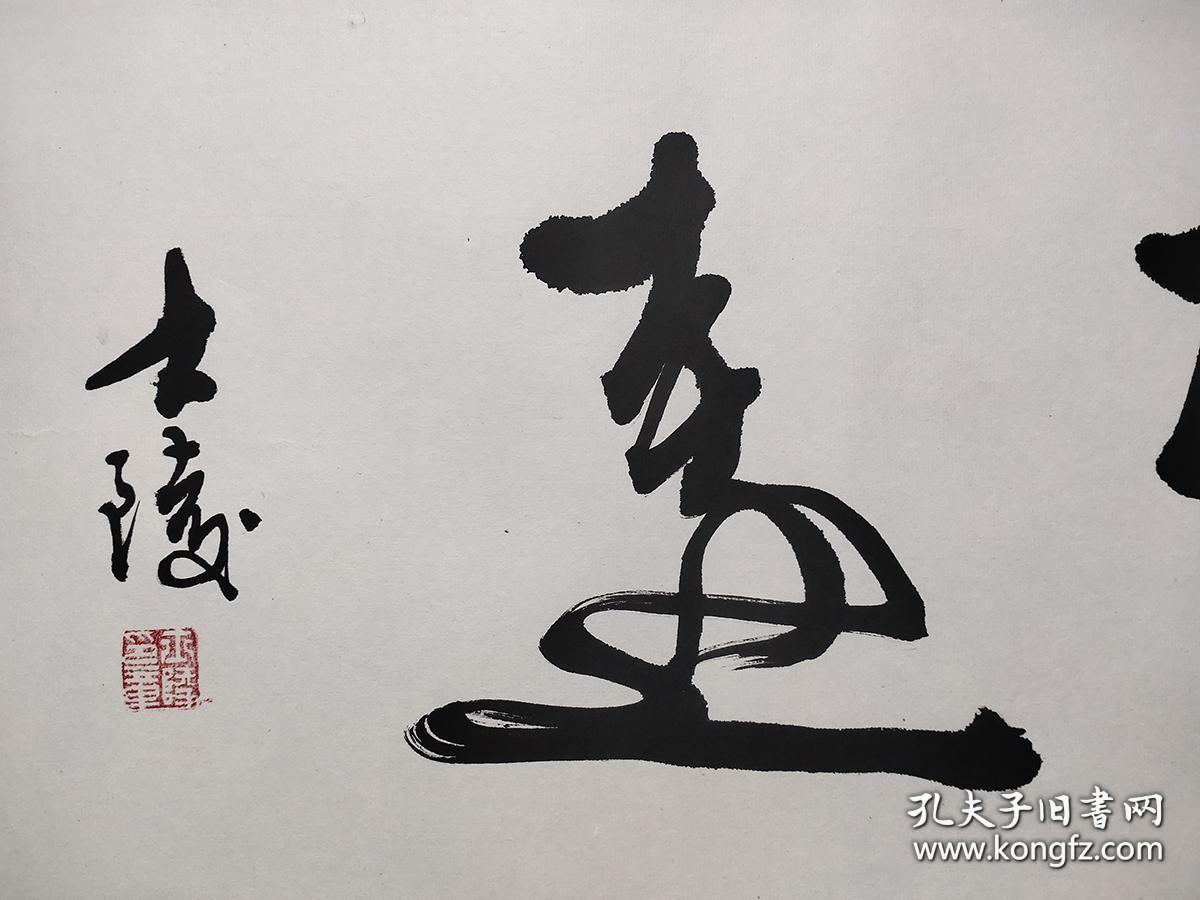 畫
士陵
孔夫子旧书网
www.kongfz.com